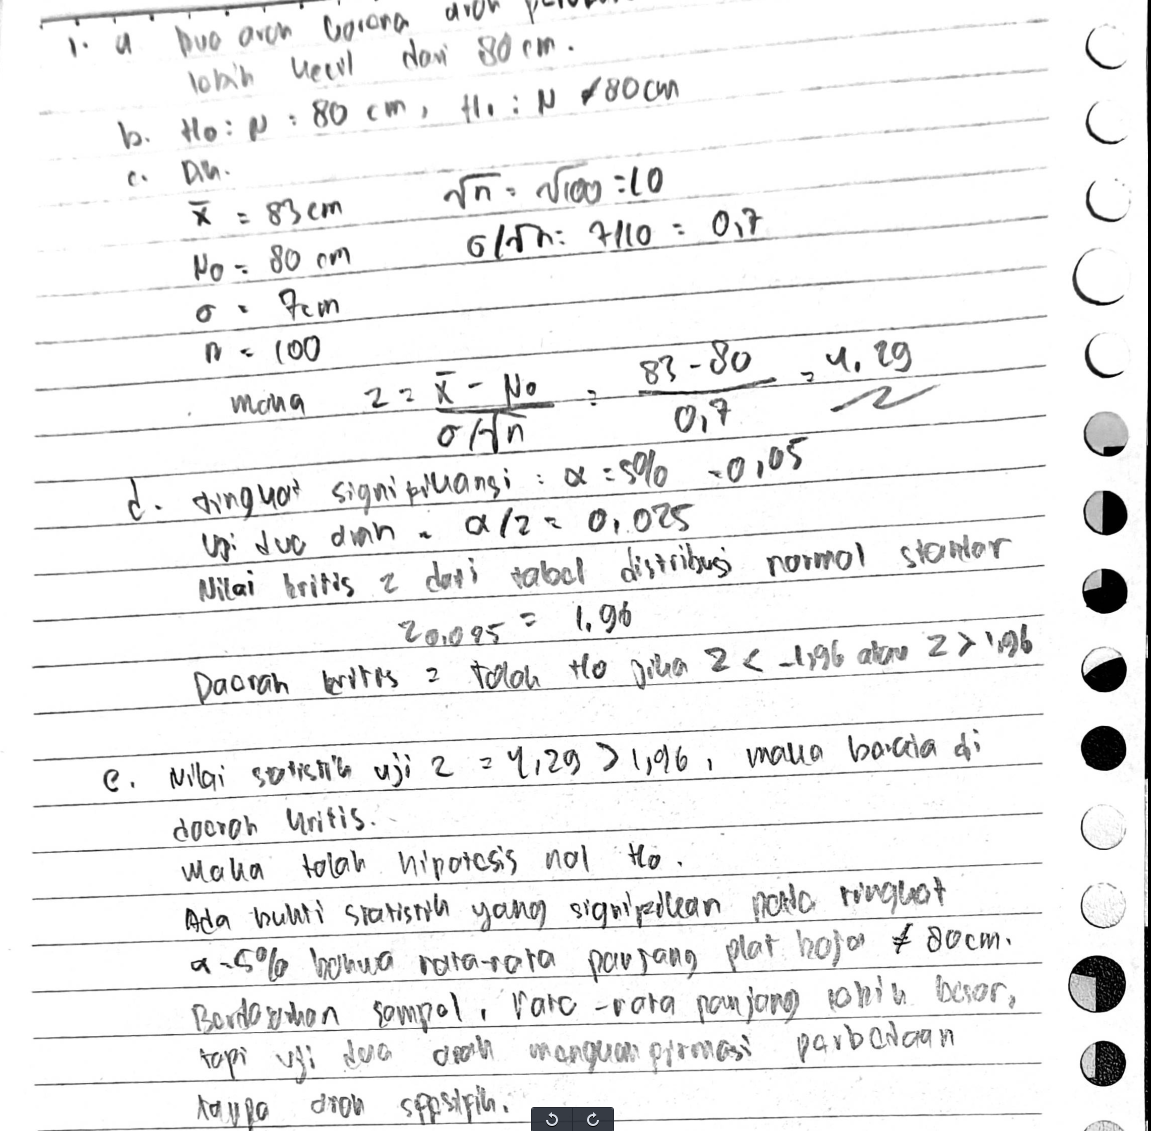 1. a Dua arah karena arah
lebih kecil dari 80 cm.
b. Ho : N = 80 cm, H1 : N ≠ 80 cm
c. Dik.
x̄ = 83 cm √n = √100 = 10
No = 80 cm σ/√n = 7/10 = 0,7
σ = 7cm
n = 100
maka z = x̄ - No / σ/√n = 83 - 80 / 0,7 = 4,29
d. tingkat signifikansi : α = 5% = 0,05
Uji dua arah = α/2 = 0,025
Nilai kritis z dari tabel distribusi normal standar
z0,025 = 1,96
Daerah kritis = tolak Ho jika Z < -1,96 atau Z > 1,96
e. Nilai statistik uji z = 4,29 > 1,96, maka berada di
daerah kritis.
Maka tolak hipotesis nol Ho.
Ada bukti statistik yang signifikan pada tingkat
α = 5% bahwa rata-rata panjang plat baja ≠ 80cm.
Berdasarkan sampel, rata-rata panjang lebih besar,
tapi uji dua arah mengkonfirmasi perbedaan
tanpa arah spesifik.